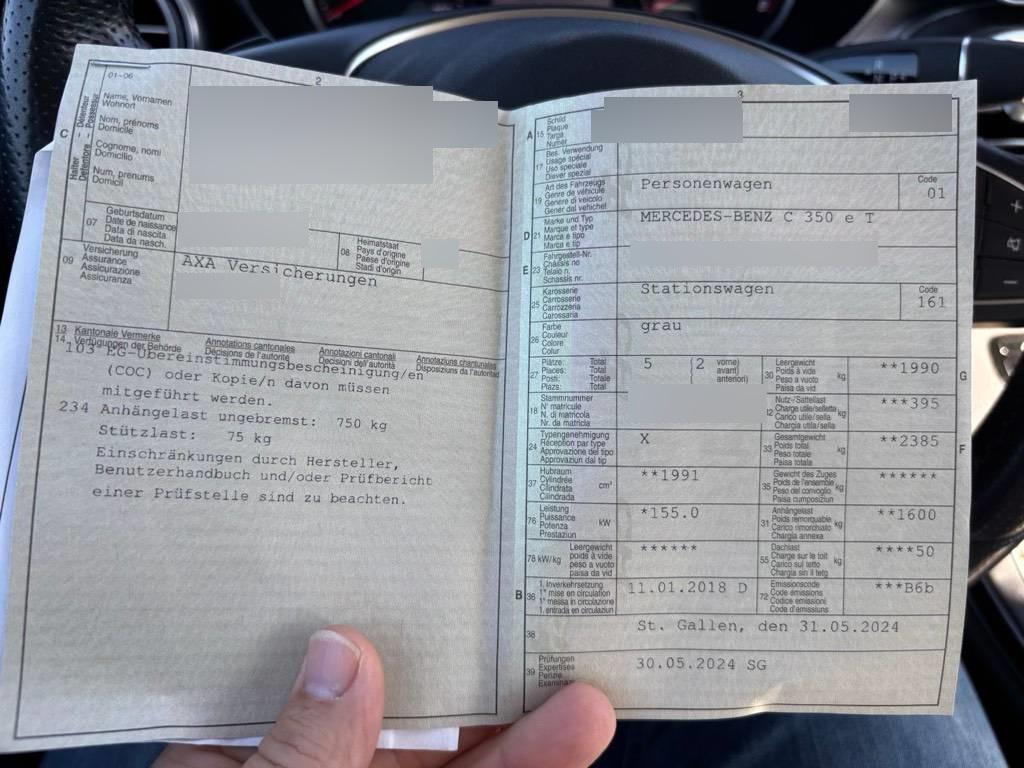 2
01-06
Name, Vornamen
Wohnort
Nom, prénoms
Domicile
Cognome, nomi
Domicilio
Num, prenums
Domicil
C
Halter - Détenteur
Detentore - Possessur
07
Geburtsdatum
Date de naissance
Data di nascita
Data da nasch.
08
Heimatstaat
Pays d'origine
Paese d'origine
Stadi d'origin
09
Versicherung
Assurance
Assicurazione
Assicuranza
AXA Versicherungen
13 Kantonale Vermerke
14 Verfügungen der Behörde
Annotations cantonales
Décisions de l'autorité
Annotazioni cantonali
Decisioni dell'autorità
Annotaziuns chantunalas
Disposiziuns da l'autoritad
103 EG-Übereinstimmungsbescheinigung/en
(COC) oder Kopie/n davon müssen
mitgeführt werden.
234 Anhängelast ungebremst: 750 kg
Stützlast: 75 kg
Einschränkungen durch Hersteller,
Benutzerhandbuch und/oder Prüfbericht
einer Prüfstelle sind zu beachten.
3
A
15
Schild
Plaque
Targa
Numer
17
Bes. Verwendung
Usage spécial
Uso speciale
Diever spezial
19
Art des Fahrzeugs
Genre de véhicule
Genere di veicolo
Gener dal vehichel
Personenwagen
Code
01
D
21
Marke und Typ
Marque et type
Marca e tipo
Marca e tip
MERCEDES-BENZ C 350 e T
E
23
Fahrgestell-Nr.
Châssis no
Telaio n.
Schassis nr.
25
Karosserie
Carrosserie
Carrozzeria
Carossaria
Stationswagen
Code
161
26
Farbe
Couleur
Colore
Colur
grau
27
Plätze: Total
Places: Total
Posti: Totale
Plazs: Total
5
(2
vorne)
avant)
anteriori)
30
Leergewicht
Poids à vide
Peso a vuoto
Paisa da vid
kg
**1990
G
18
Stammnummer
N° matricule
N. di matricola
Nr. da matricla
32
Nutz-/Sattellast
Charge utile/sellette
Carico utile/sella
Chargia utila/sella
kg
***395
24
Typengenehmigung
Réception par type
Approvazione del tipo
Approvaziun dal tip
X
33
Gesamtgewicht
Poids total
Peso totale
Paisa totala
kg
**2385
F
37
Hubraum
Cylindrée
Cilindrata
Cilindrada
cm³
**1991
35
Gewicht des Zuges
Poids de l'ensemble
Peso del convoglio
Paisa cumposiziun
kg
******
76
Leistung
Puissance
Potenza
Prestaziun
kW
*155.0
31
Anhängelast
Poids remorquable
Carico rimorchiato
Chargia annexa
kg
**1600
78 kW/kg
Leergewicht
poids à vide
peso a vuoto
paisa da vid
******
55
Dachlast
Charge sur le toit
Carico sul tetto
Chargia sin il tetg
kg
****50
B
36
1. Inverkehrsetzung
1re mise en circulation
1a messa in circolazione
1. entrada en circulaziun
11.01.2018 D
72
Emissionscode
Code émissions
Codice emissioni
Code d'emissiuns
***B6b
38
St. Gallen, den 31.05.2024
39
Prüfungen
Expertises
Perizie
30.05.2024 SG